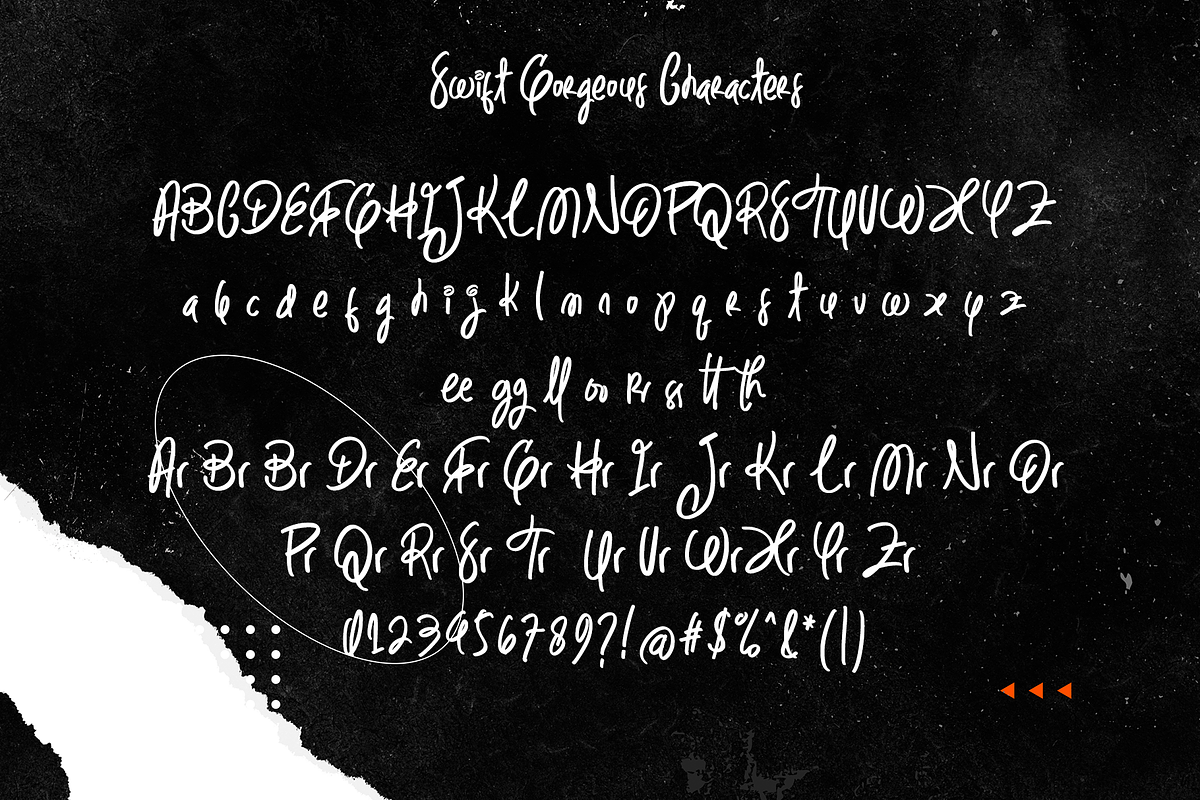 Swift Gorgeous Characters
ABCDEFGHIJKLMNOPQRSTUVWXYZ
a b c d e f g h i j k l m n o p q r s t u v w x y z
ee gg ll oo rr ss tt th
Ar Br Br Dr Er Fr Gr Hr Ir Jr Kr Lr Mr Nr Or
Pr Qr Rr Sr Tr Ur Vr Wr Xr Yr Zr
0123456789?!@#$%^&*(|)